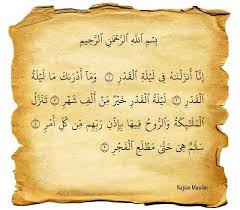 بِسْمِ ٱللَّهِ ٱلرَّحْمَٰنِ ٱلرَّحِيمِ
إِنَّآ أَنزَلْنَٰهُ فِى لَيْلَةِ ٱلْقَدْرِ ۝١ وَمَآ أَدْرَىٰكَ مَا لَيْلَةُ
ٱلْقَدْرِ ۝٢ لَيْلَةُ ٱلْقَدْرِ خَيْرٌ مِّنْ أَلْفِ شَهْرٍ ۝٣ تَنَزَّلُ
ٱلْمَلَٰٓئِكَةُ وَٱلرُّوحُ فِيهَا بِإِذْنِ رَبِّهِم مِّن كُلِّ أَمْرٍ ۝٤
سَلَٰمٌ هِىَ حَتَّىٰ مَطْلَعِ ٱلْفَجْرِ ۝٥
Kajian Muslim